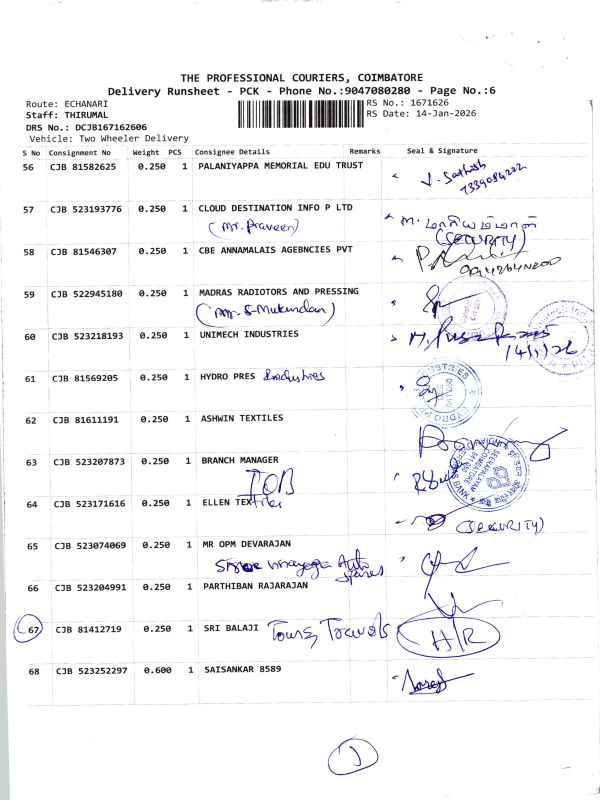 THE PROFESSIONAL COURIERS, COIMBATORE
Delivery Runsheet - PCK - Phone No.:9047080280 - Page No.:6
Route: ECHANARI RS No.: 1671626
Staff: THIRUMAL RS Date: 14-Jan-2026
DRS No.: DCJB167162606
Vehicle: Two Wheeler Delivery
S No Consignment No Weight PCS Consignee Details Remarks Seal & Signature
56 CJB 81582625 0.250 1 PALANIYAPPA MEMORIAL EDU TRUST
57 CJB 523193776 0.250 1 CLOUD DESTINATION INFO P LTD
(Mr. Praveen) (SECURITY)
58 CJB 81546307 0.250 1 CBE ANNAMALAIS AGEBNCIES PVT
59 CJB 522945180 0.250 1 MADRAS RADIOTORS AND PRESSING
(Mr. S-Mukundan)
60 CJB 523218193 0.250 1 UNIMECH INDUSTRIES
14/1/26
61 CJB 81569205 0.250 1 HYDRO PRES Industries
62 CJB 81611191 0.250 1 ASHWIN TEXTILES
63 CJB 523207873 0.250 1 BRANCH MANAGER
IOB
64 CJB 523171616 0.250 1 ELLEN TEXtiles
(SECURITY)
65 CJB 523074069 0.250 1 MR OPM DEVARAJAN
Auto
66 CJB 523204991 0.250 1 PARTHIBAN RAJARAJAN
67 CJB 81412719 0.250 1 SRI BALAJI Tours, Travels H/R
68 CJB 523252297 0.600 1 SAISANKAR 8589